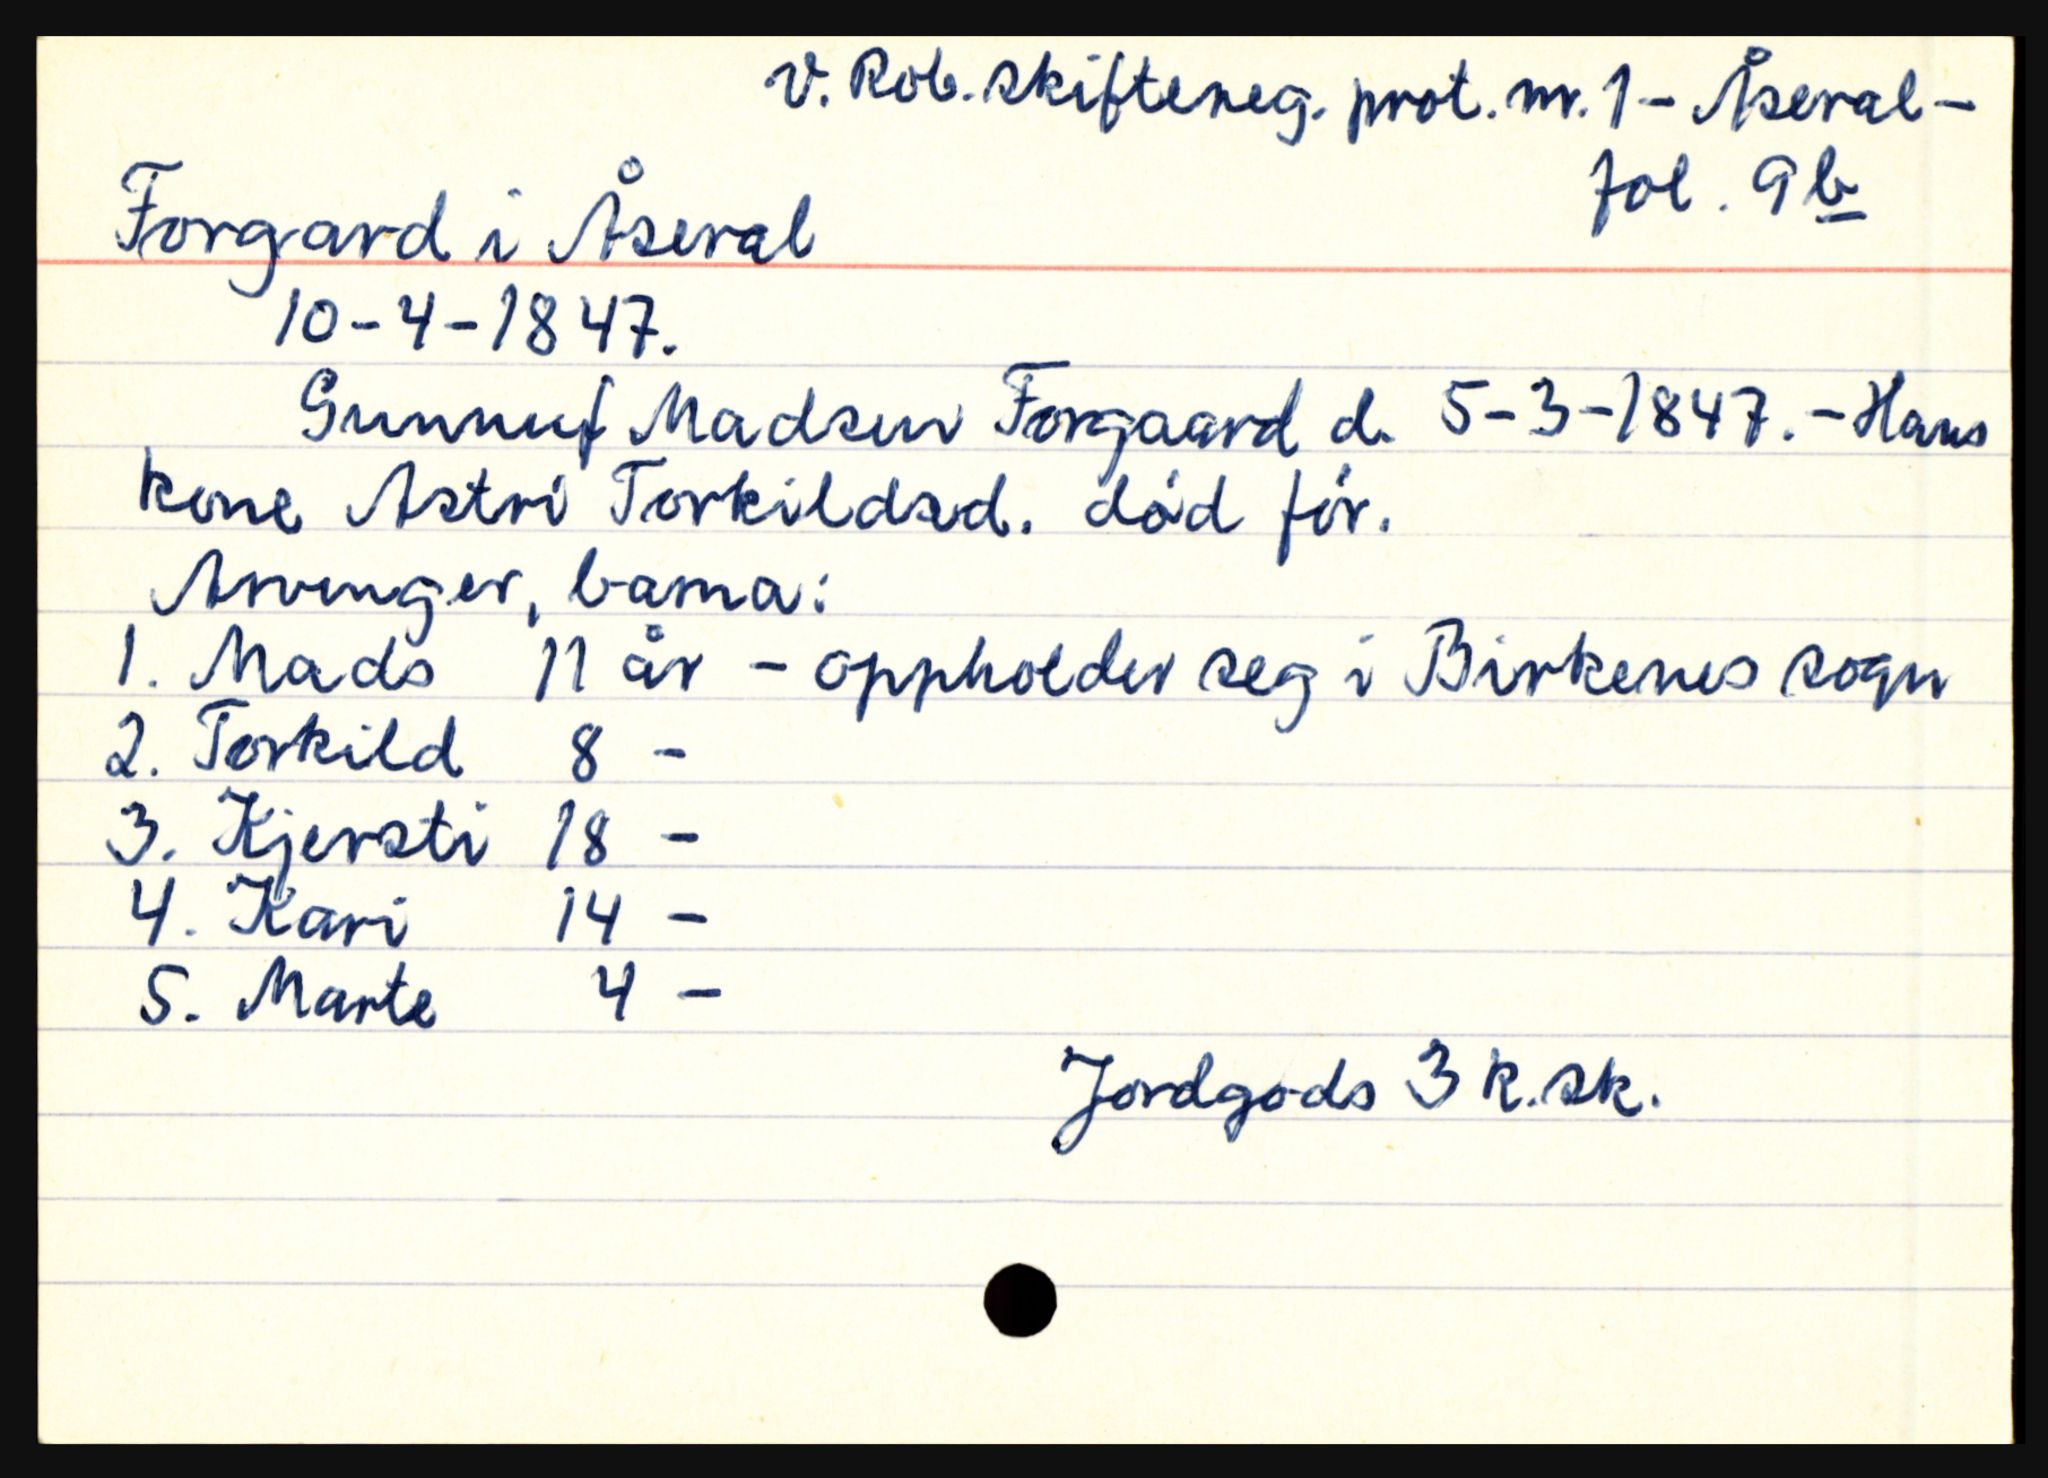 V. Rob. skiftereg. prot. nr. 1 - Åseral -
fol. 9b
Forgard i Åseral
10-4-1847.
Gunnuf Madsen Forgaard d. 5-3-1847. - Hans
kone Astri Torkildsd. død før.
Arvinger, barna:
1. Mads 11 år - oppholder seg i Birkenes sogn
2. Torkild 8 -
3. Kjersti 18 -
4. Kari 14 -
5. Marte 4 -
Jordgods 3 k.sk.